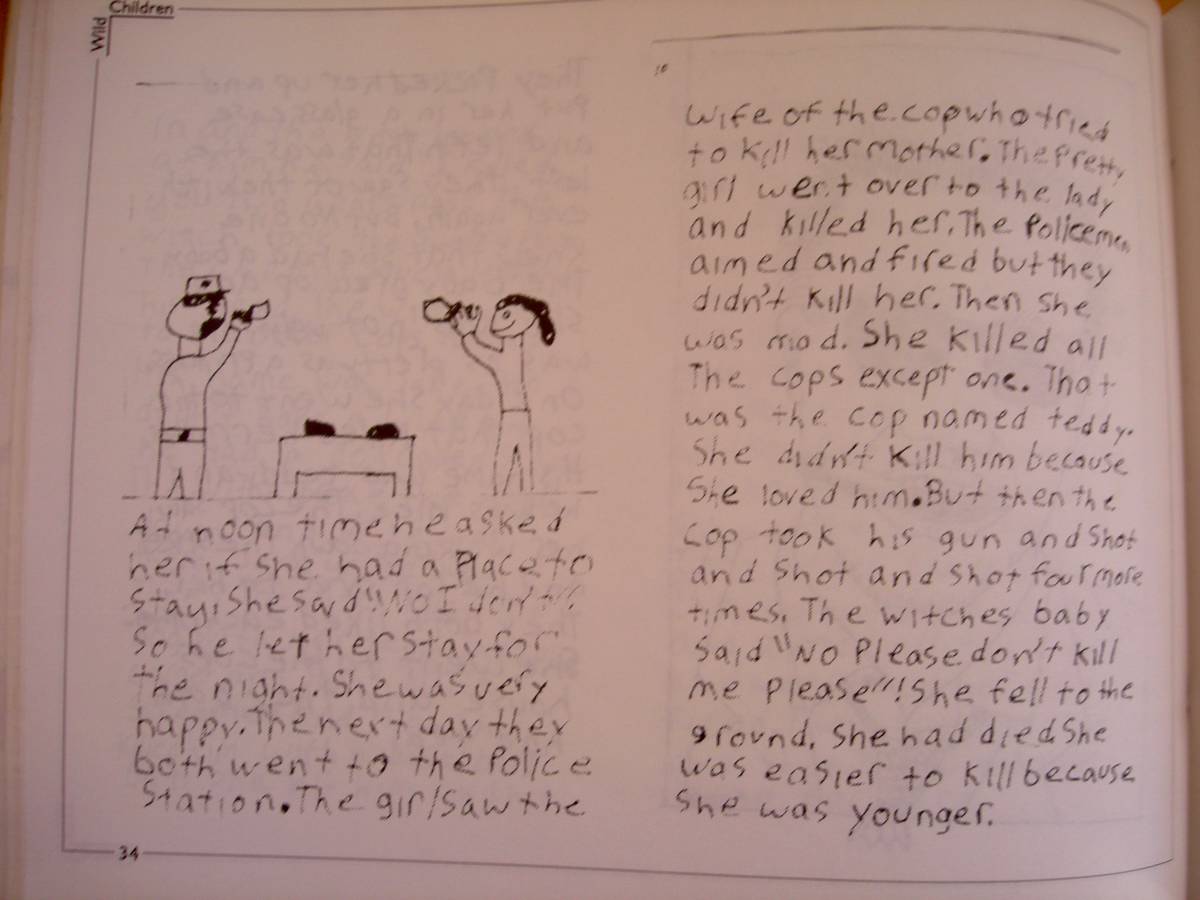 Wild
Children
At noon time he asked
her if she had a Place to
stay, She said "No I don't"
So he let her stay for
the night. She was very
happy. The next day they
both went to the Police
Station. The girl saw the
10
wife of the cop who tried
to kill her mother. The Pretty
girl went over to the lady
and killed her. The Policemen
aimed and fired but they
didn't kill her. Then she
was mad. She killed all
The cops except one. That
was the cop named teddy.
She didn't kill him because
She loved him. But then the
Cop took his gun and Shot
and Shot and Shot four more
times. The witches baby
Said "No Please don't kill
me Please"! She fell to the
ground. She had died. She
was easier to kill because
She was younger.
34